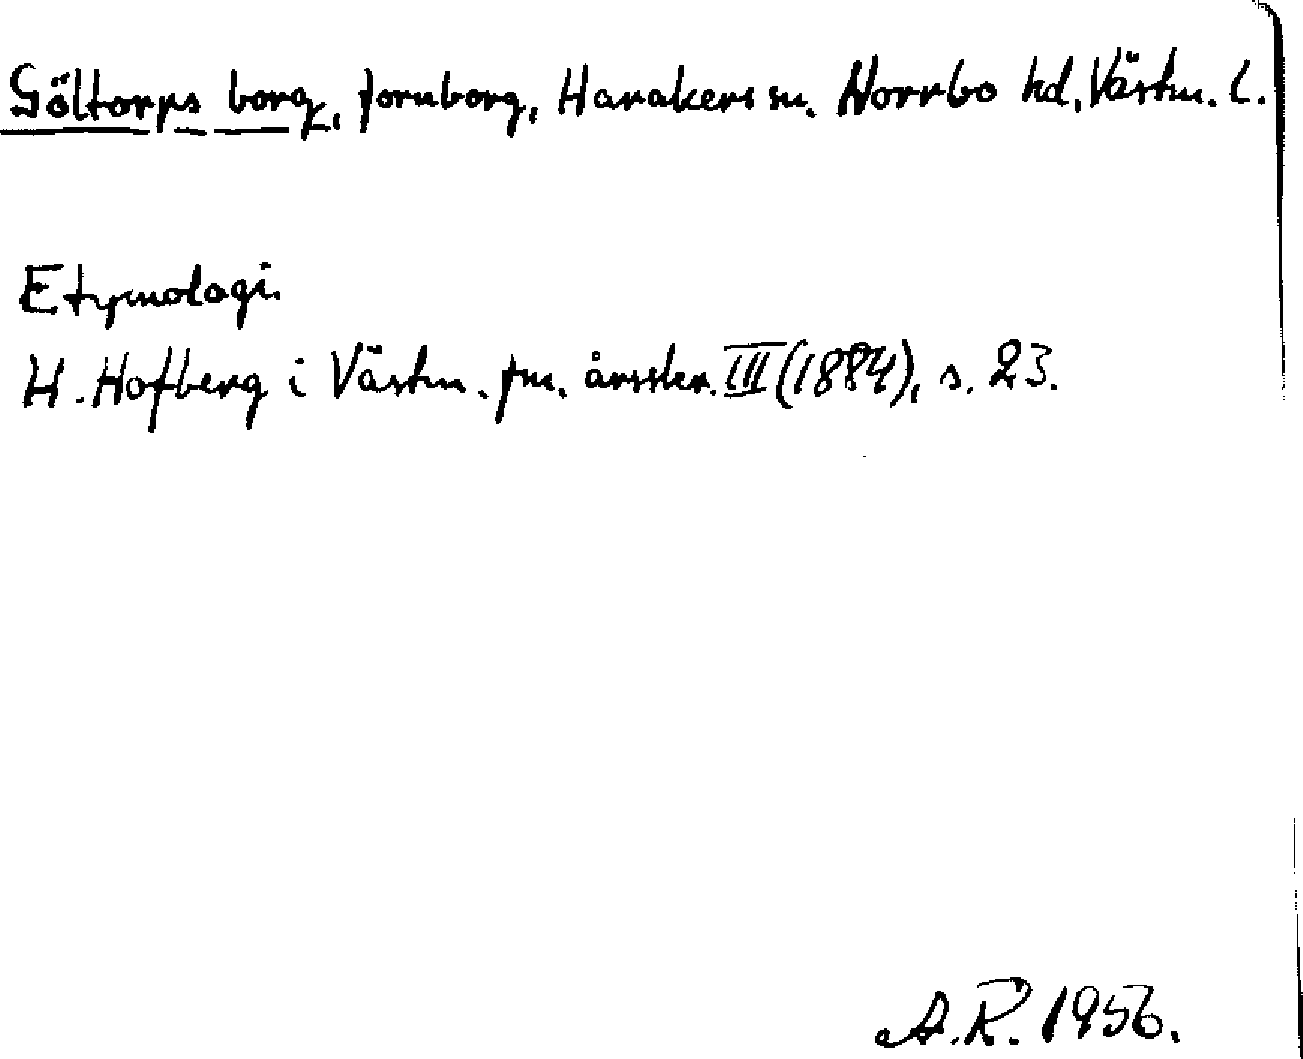 Göltorps borg, fornborg, Harakers sn. Norrbo hd, Västm. l.
Etymologi.
H. Hofberg i Västm. fm. årsskr. III (1884), s. 23.
A.R. 1956.